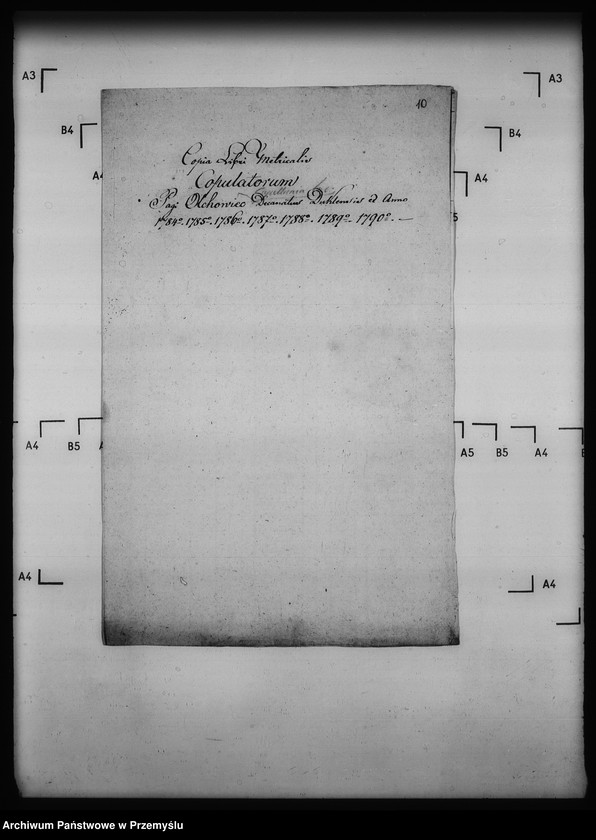 10
Copia Libri Metricalis
Copulatorum
Pagi Olchowiec Decanatus Duklensis ed Anno
1784º. 1785º. 1786º. 1787º. 1788º. 1789º. 1790º. —
A3
A3
B4
B4
A4
A4
5
A4
B5
A
A5
B5
A4
A4
A4
Archiwum Państwowe w Przemyślu